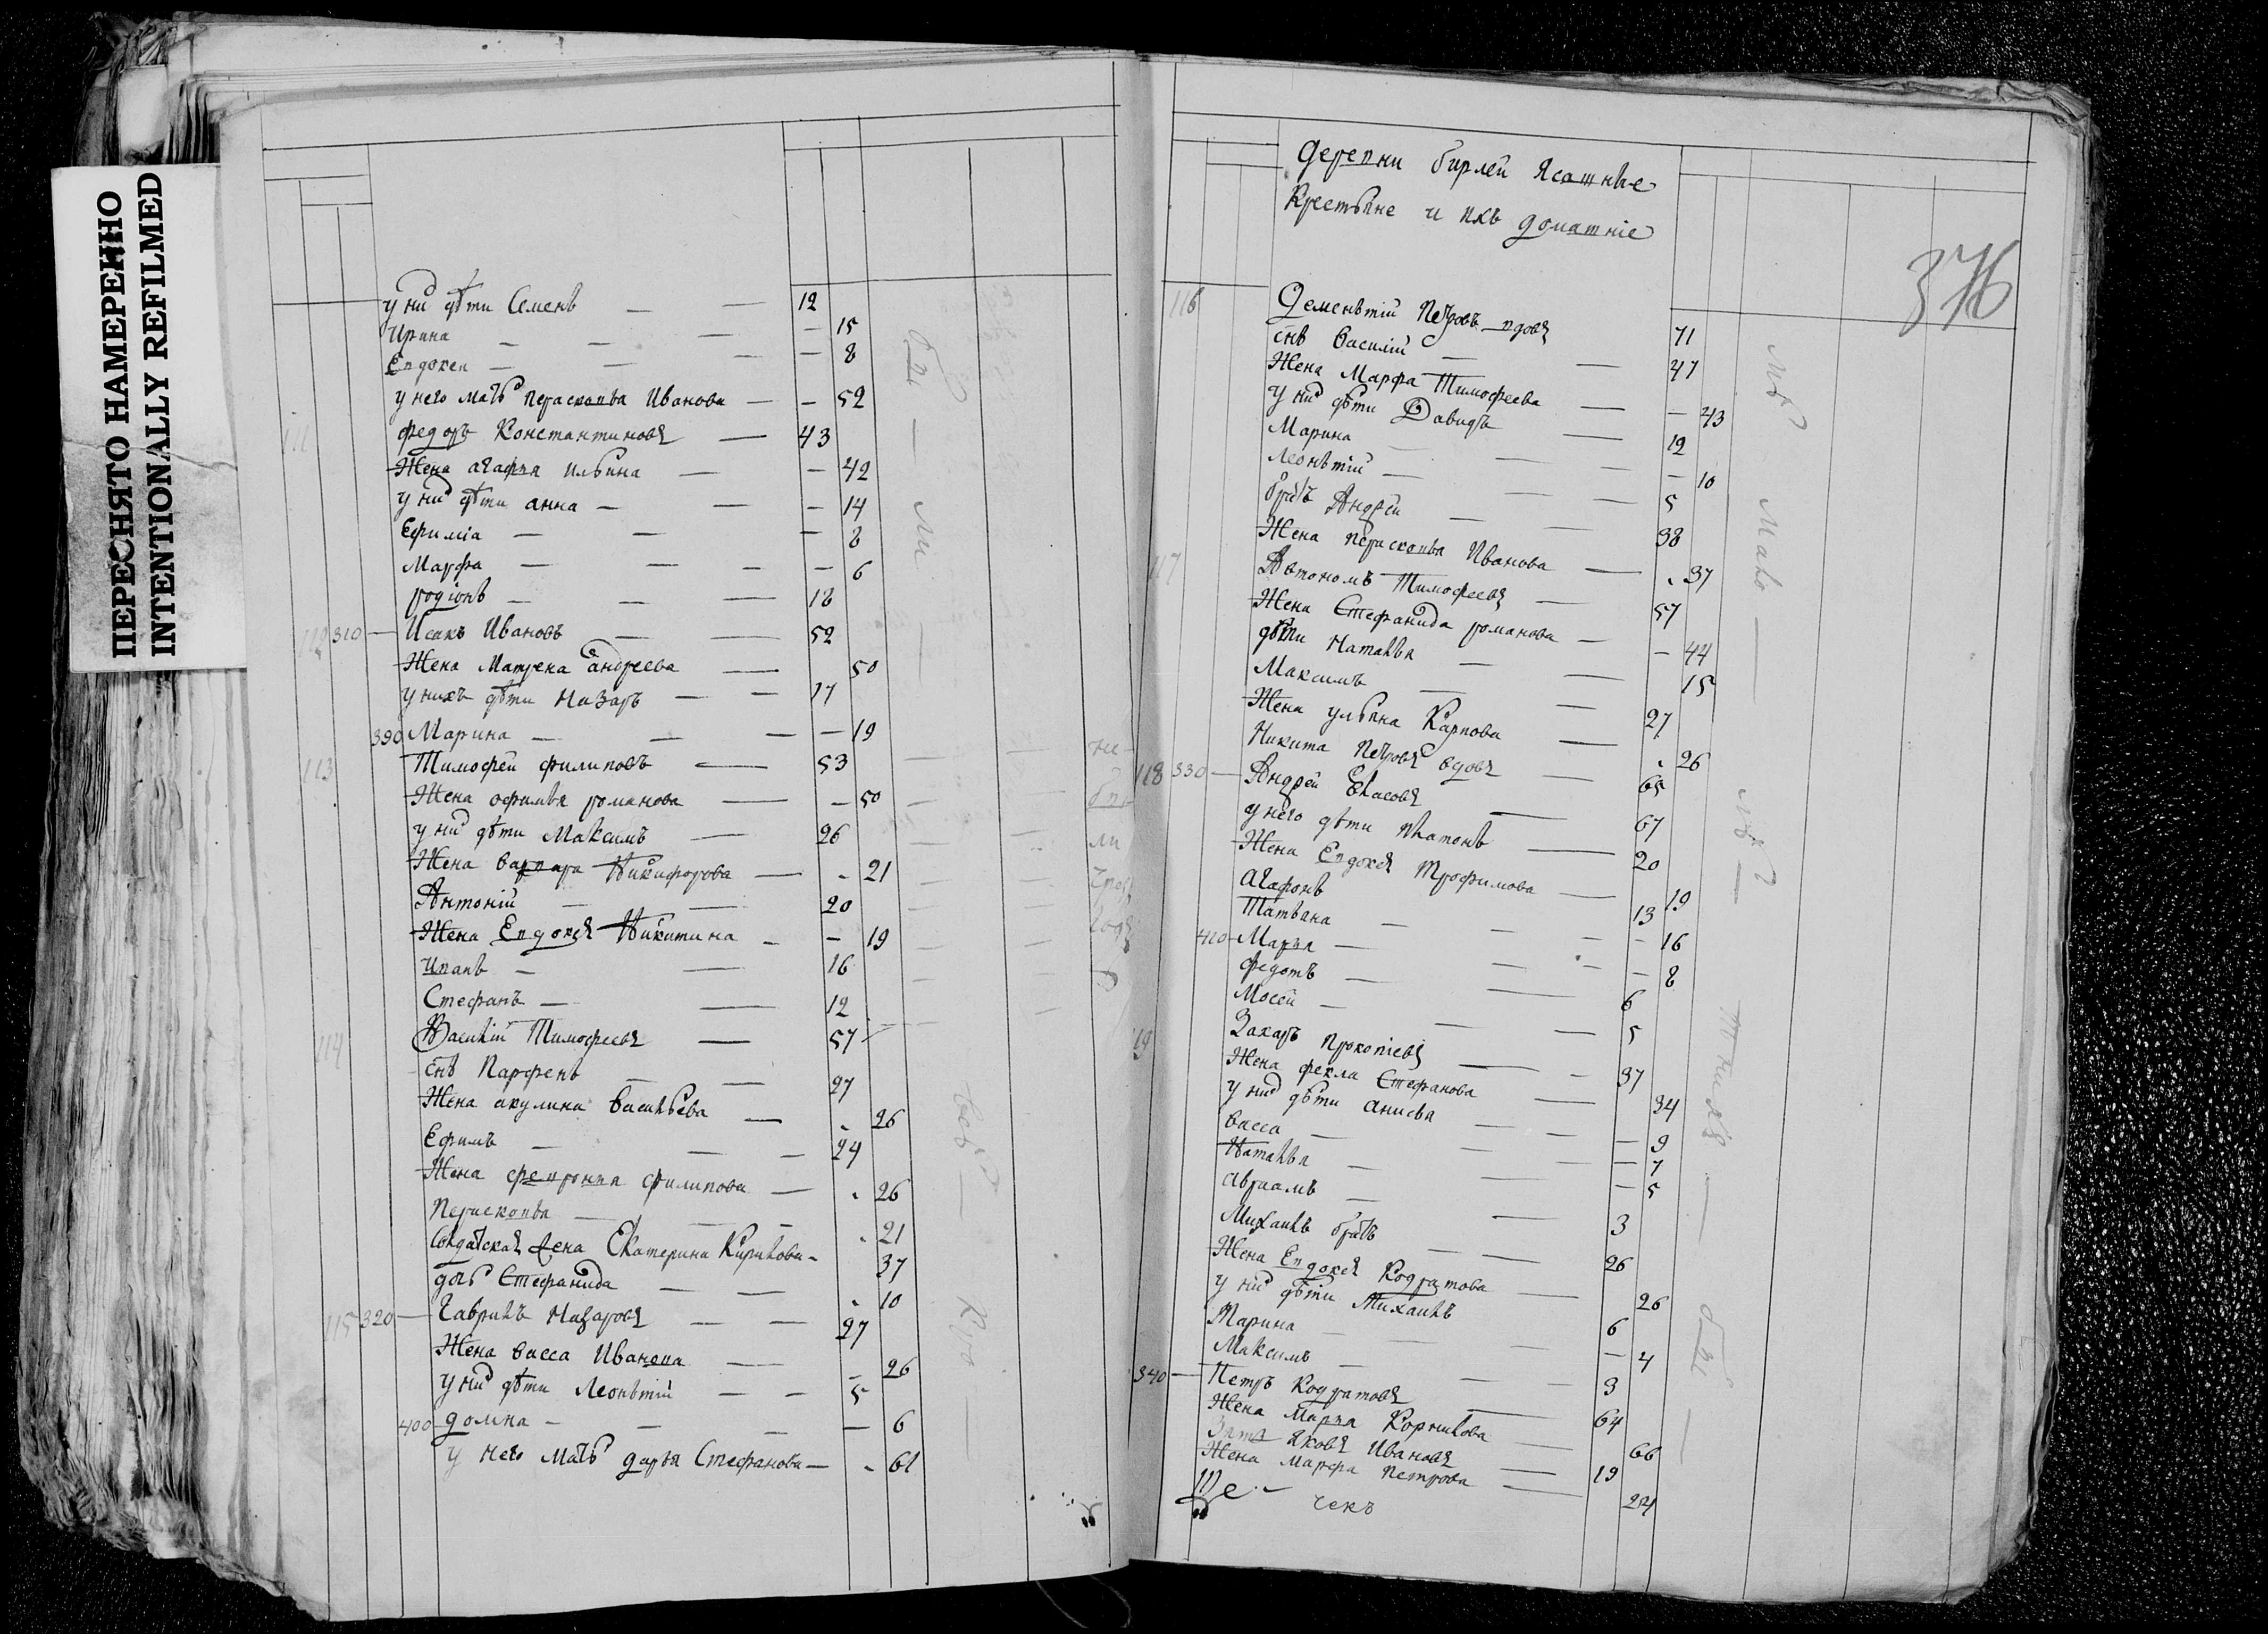 ПЕРЕСНЯТО НАМЕРЕННО
INTENTIONALLY REFILMED
у них дѣти Семенъ — — 12
Ирина — — — — 15
Евдокея — — — — 8
у него мать Парасковья Иванова — — 52
111 Федоръ Константиновъ — 43
Жена агафья Ильина — — 42
у них дѣти анна — — — 14
Ефиміа — — — 8
Марфа — — — — 6
родіонъ — — — 18
112 310 — Исакъ Ивановъ — — 52
Жена Матрена андреева — 50
у нихъ дѣти Назаръ — — 17
390 Марина — — — — 19
113 Тимофей филиповъ — 53
Жена офимья романова — — 50
у них дѣти Максимъ — 26
Жена варвара Никифорова — - 21
Антоній — — 20
Жена Евдокея Никитина - — 19
Иванъ — — 16
Стефанъ — — 12
114 Василій Тимофеевъ — 57
снъ Парфенъ — — 27
Жена акулина васильева — - 26
Ефимъ — — — 24
Жена феврониа филипова — . 26
Парасковья — — — . 21
Солдатская жена Екатерина Кирилова - 37
дочь Стефанида — — . 10
115 320 — Гаврилъ Назаровъ — — 27
Жена васса Иванова — — 26
у них дѣти Леонтій — — 5
400 домна — — — — 6
у него мать дарья Стефанова — - 61
376
деревни бирлей ясашные
Крестьяне и ихъ доматніе
116 Дементій Петровъ вдовъ 71
снъ Василій — — 47
Жена Марфа Тимофеева — — 43
у них дѣти Давидъ — 12
Марина — — — — 10
Леонтій — — — 5
братъ Андрей — — 38
Жена парасковья Иванова — . 37
117 Автономъ Тимофеевъ — 57
Жена Стефанида романова — — 44
дѣти Наталья — — 15
Максимъ — — 27
Жена ульяна Карпова — . 26
Никита Петровъ вдовъ — 65
118 330 — Андрей Власовъ — 67
у него дѣти платонъ — 20
Жена Евдокея Трофимова — 19
Агафонъ 13
Татьяна — — — — 16
410 Марья — — — — 8
федотъ — — 6
Мосей — — — 5
119 Захаръ прокопіевъ — - 37
Жена фекла Стефанова — 34
у них дѣти анисья — — — 9
васса — — — — 7
Наталья — — — 5
авраамъ — — 3
Михаилъ братъ — — 26
Жена Евдокея Кодратова — 26
у них дѣти Михаилъ 6
Марина — — — — 4
Максимъ — — — 3
340 — Петръ Кодратовъ — 64
Жена Марья Корнилова — 66
Зять яковъ Ивановъ — 19
Жена Марфа петрова — 24